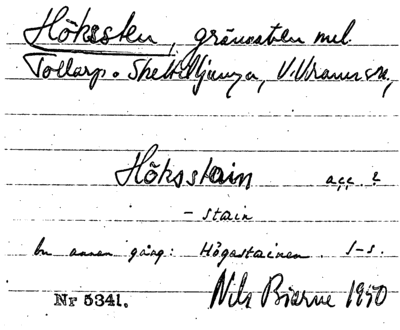 Hökssten, gränssten mel.
Tollarp o. Skettilljunga, V. Vram sn,
Höksstain acc. ?
- stain
En annan gång: Högastainen. s-s.
Nr 5341. Nils Bjerne 1950